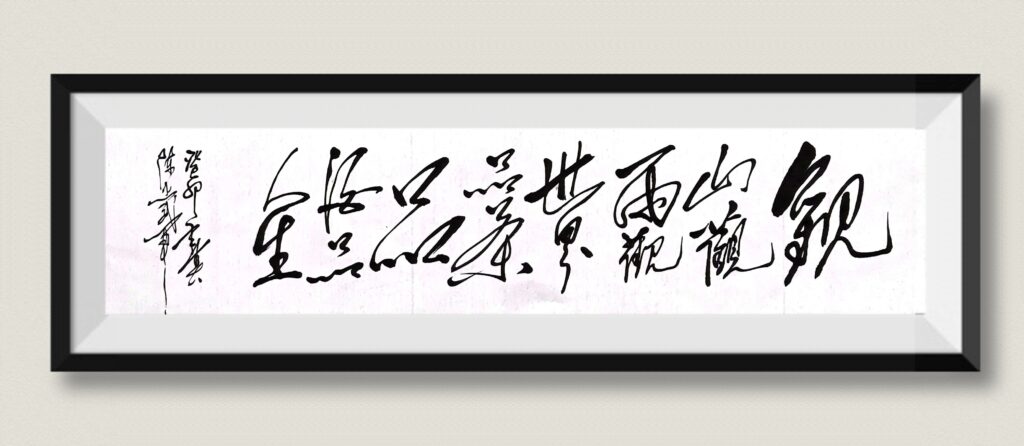 觀
山觀
雨觀
世界
品茶
品
酒品
人生
癸卯
陈